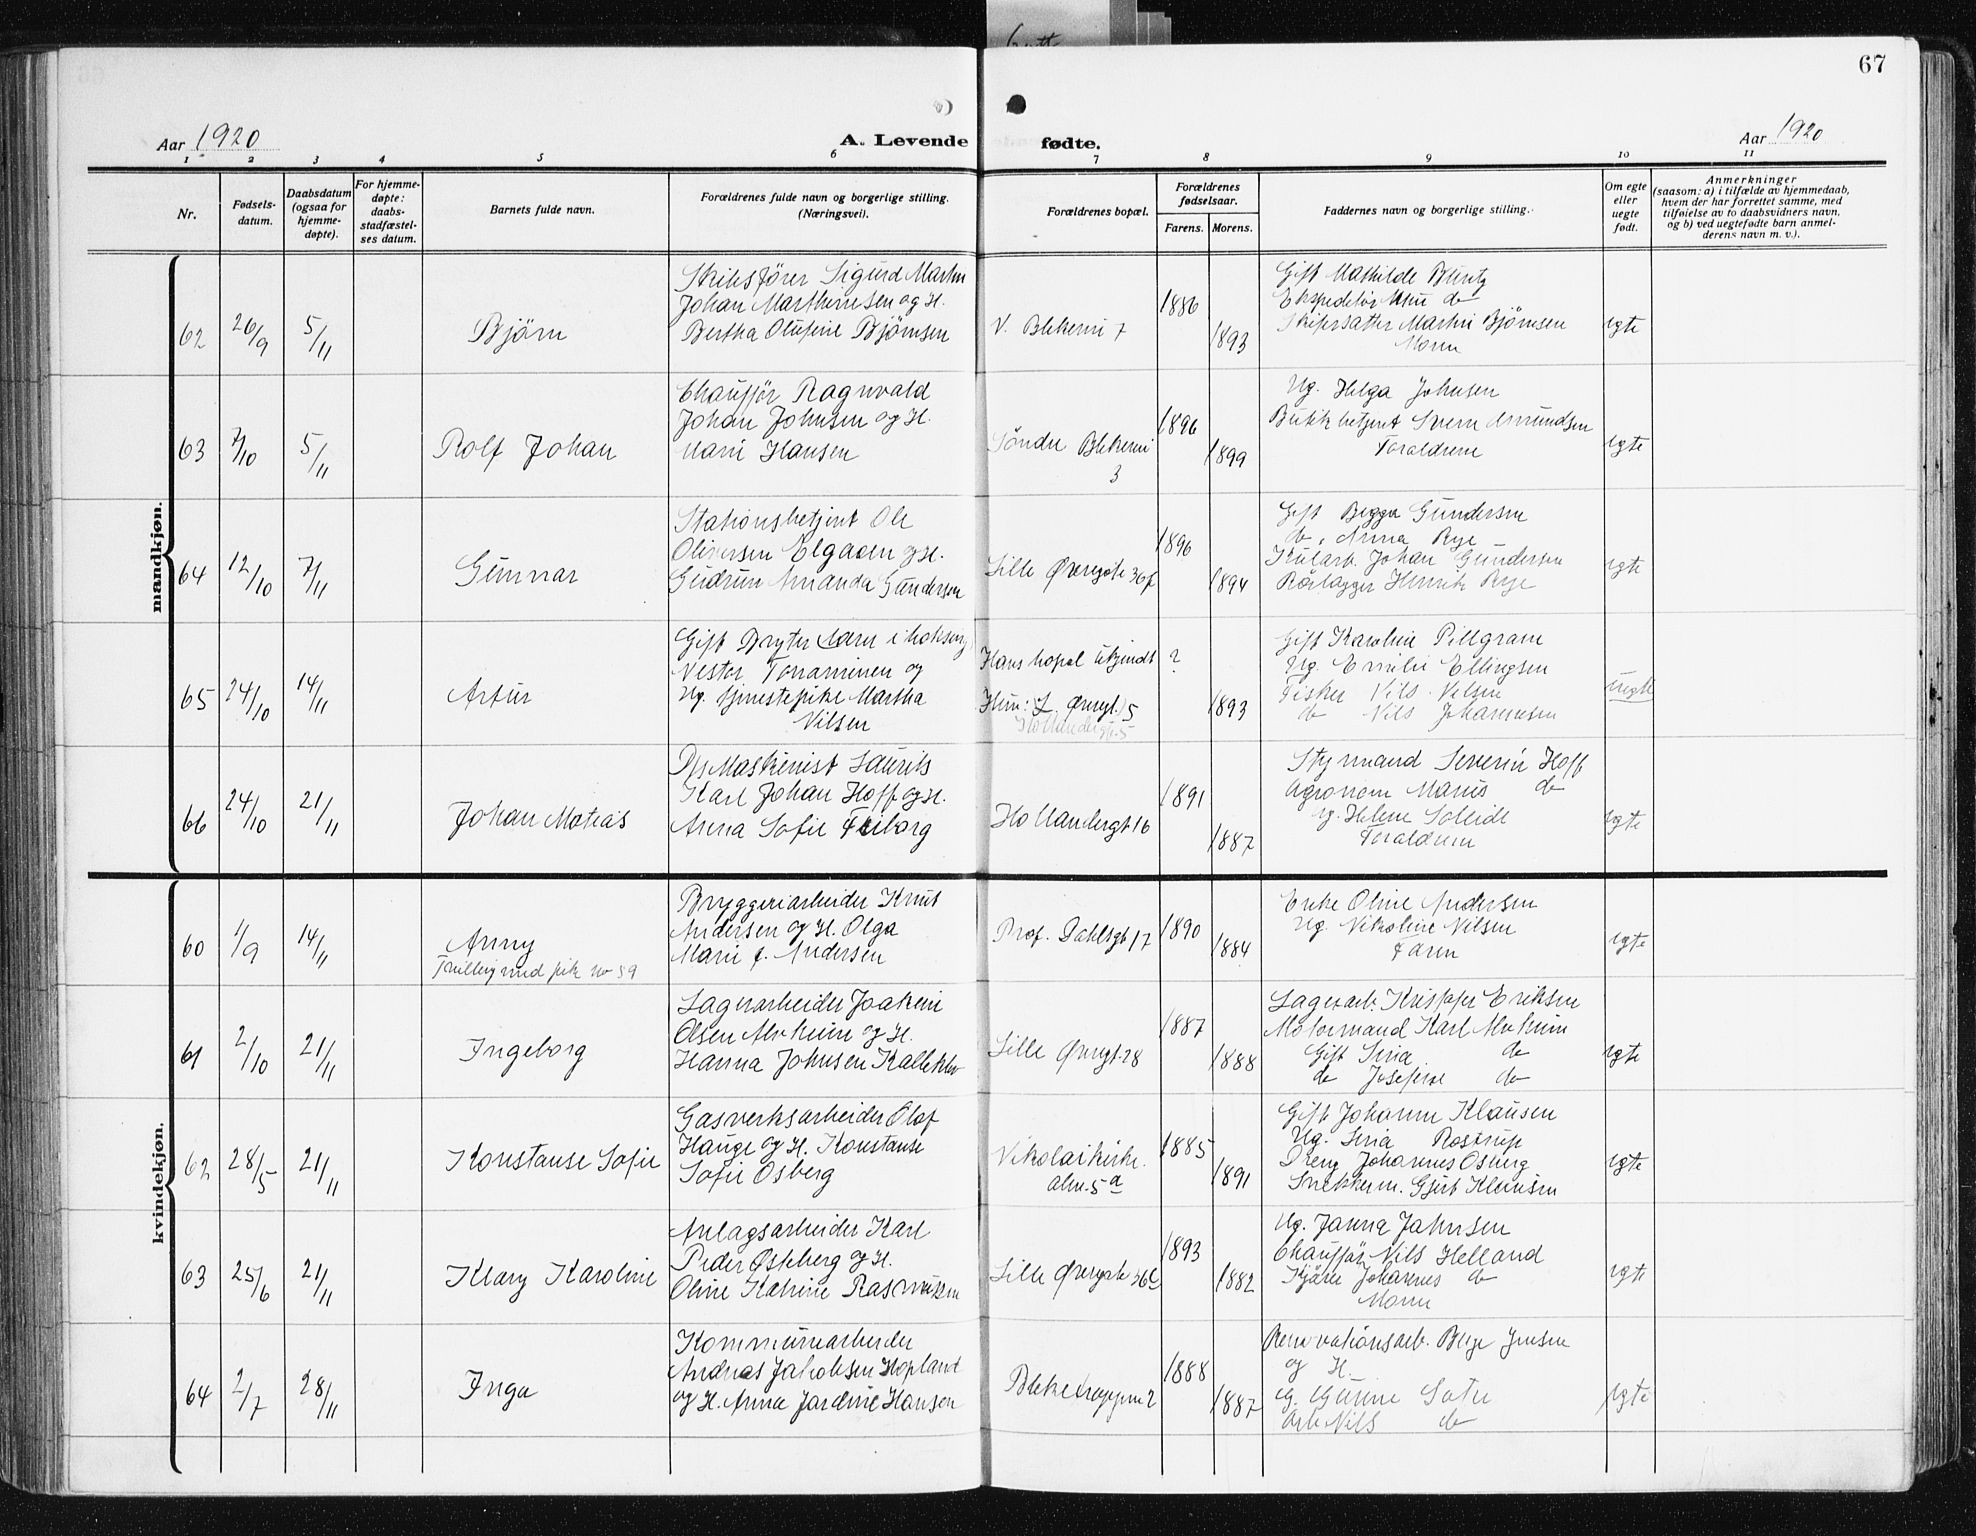 67
Aar 1920
A. Levende fødte.
Aar 1920
1 2 3 4 5 6 7 8 9 10 11
Nr.
Fødsels-
datum.
Daabsdatum
(ogsaa for
hjemme-
døpte).
For hjemme-
døpte:
daabs-
stadfæstel-
ses datum.
Barnets fulde navn.
Forældrenes fulde navn og borgerlige stilling.
(Næringsvei).
Forældrenes bopæl.
Forældrenes
fødselsaar.
Farens. Morens.
Faddernes navn og borgerlige stilling.
Om egte
eller
uegte
født.
Anmerkninger
(saasom: a) i tilfælde av hjemmedaab,
hvem der har forrettet samme, med
tilføielse av to daabsvidners navn,
og b) ved uegtefødte barn anmel-
derens navn m. v.).
mandkjøn.
62 26/9 5/11 Bjørn
Skibsfører Sigurd Martin
Johan Marthinsen og H.
Bertha Olufine Bjørnsen
V. Blekevei 7
1886 1893
Gift Mathilde
Ekspeditør do
Martin Bjørnsen
Moren
egte
63 7/10 5/11 Rolf Johan
Chauffør Ragnvald
Johan Johnsen og H.
Marie Hansen
Søndre Blekevei
3
1896 1899
Ug. Helga Johnsen
Butikbetjent Sverre Amundsen
Forældrene
egte
64 12/10 7/11 Gunnar
Stationsbetjent Ole
Oliversen Elgaaen og H.
Gudrun Amanda Gundersen
Lille Øvregate 36
1896 1894
Gift Gundersen
do. Anna Rye
Kularb. Johan Gundersen
Rørlægger Henrik Rye
egte
65 24/10 14/11 Artur
Gift
Vester og
Ug. tjenestepike Martha
Nilsen
Hans bopæl ukjendt
Hun: L. Øvregt. 5
Hollendergt. 5
? 1893
Gift Karoline Pillgram
Ug. Emilie Ellingsen
Fisker Nils Nilsen
do Nils Johannesen
uegte
66 24/10 21/11 Johan Matias
Maskinist Laurits
Karl Johan Hoff og H.
Anna Sofie
Hollendergt 16
1891 1887
Styrmand Severin Hoff
Agronom Marius do
ug. Helene Solleide
Forældrene
egte
kvindekjøn.
60 1/9 14/11 Anny
Tvilling med pike no 59
Bryggeriarbeider Knut
Andersen og H. Olga
Marie f. Andersen
Prof. Dahlsgt 17
1890 1884
Enke Oline Andersen
Ug. Nikoline Nilsen
Faren
egte
61 2/10 21/11 Ingeborg
Lagerarbeider Joakim
Olsen Alvheim og H.
Hanna Johnsen Kalleklev
Lille Øvregt. 28
1887 1888
Lagerarb. Kristofer Eriksen
Motormand Karl Alvheim
Gift Sina do
do Josefine do
egte
62 28/5 21/11 Konstanse Sofie
Gasverksarbeider Olaf
Hauge og H. Konstanse
Sofie Osberg
Nikolaikirke-
alm. 5a
1885 1891
Gift Johanne Klausen
Ug. Sina Rostrup
Dreng Johannes Osberg
Snekkerm. Gjert Klausen
egte
63 25/6 21/11 Klary Karoline
Anlagsarbeider Karl
Peder Østeberg og H.
Oline Katrine Rasmussen
Lille Øvregate 36c
1893 1882
Ug. Janna Jahnsen
Chauffør Nils Helland
Johannes do
Moren
egte
64 2/7 28/11 Inga
Kommunearbeider
Andreas Jakobsen Hopland
og H. Anna Jardine Hansen
Bleketrappen 2
1888 1887
Renovationsarb. Jensen
og H.
G. Sate
Arb. Nils do
egte